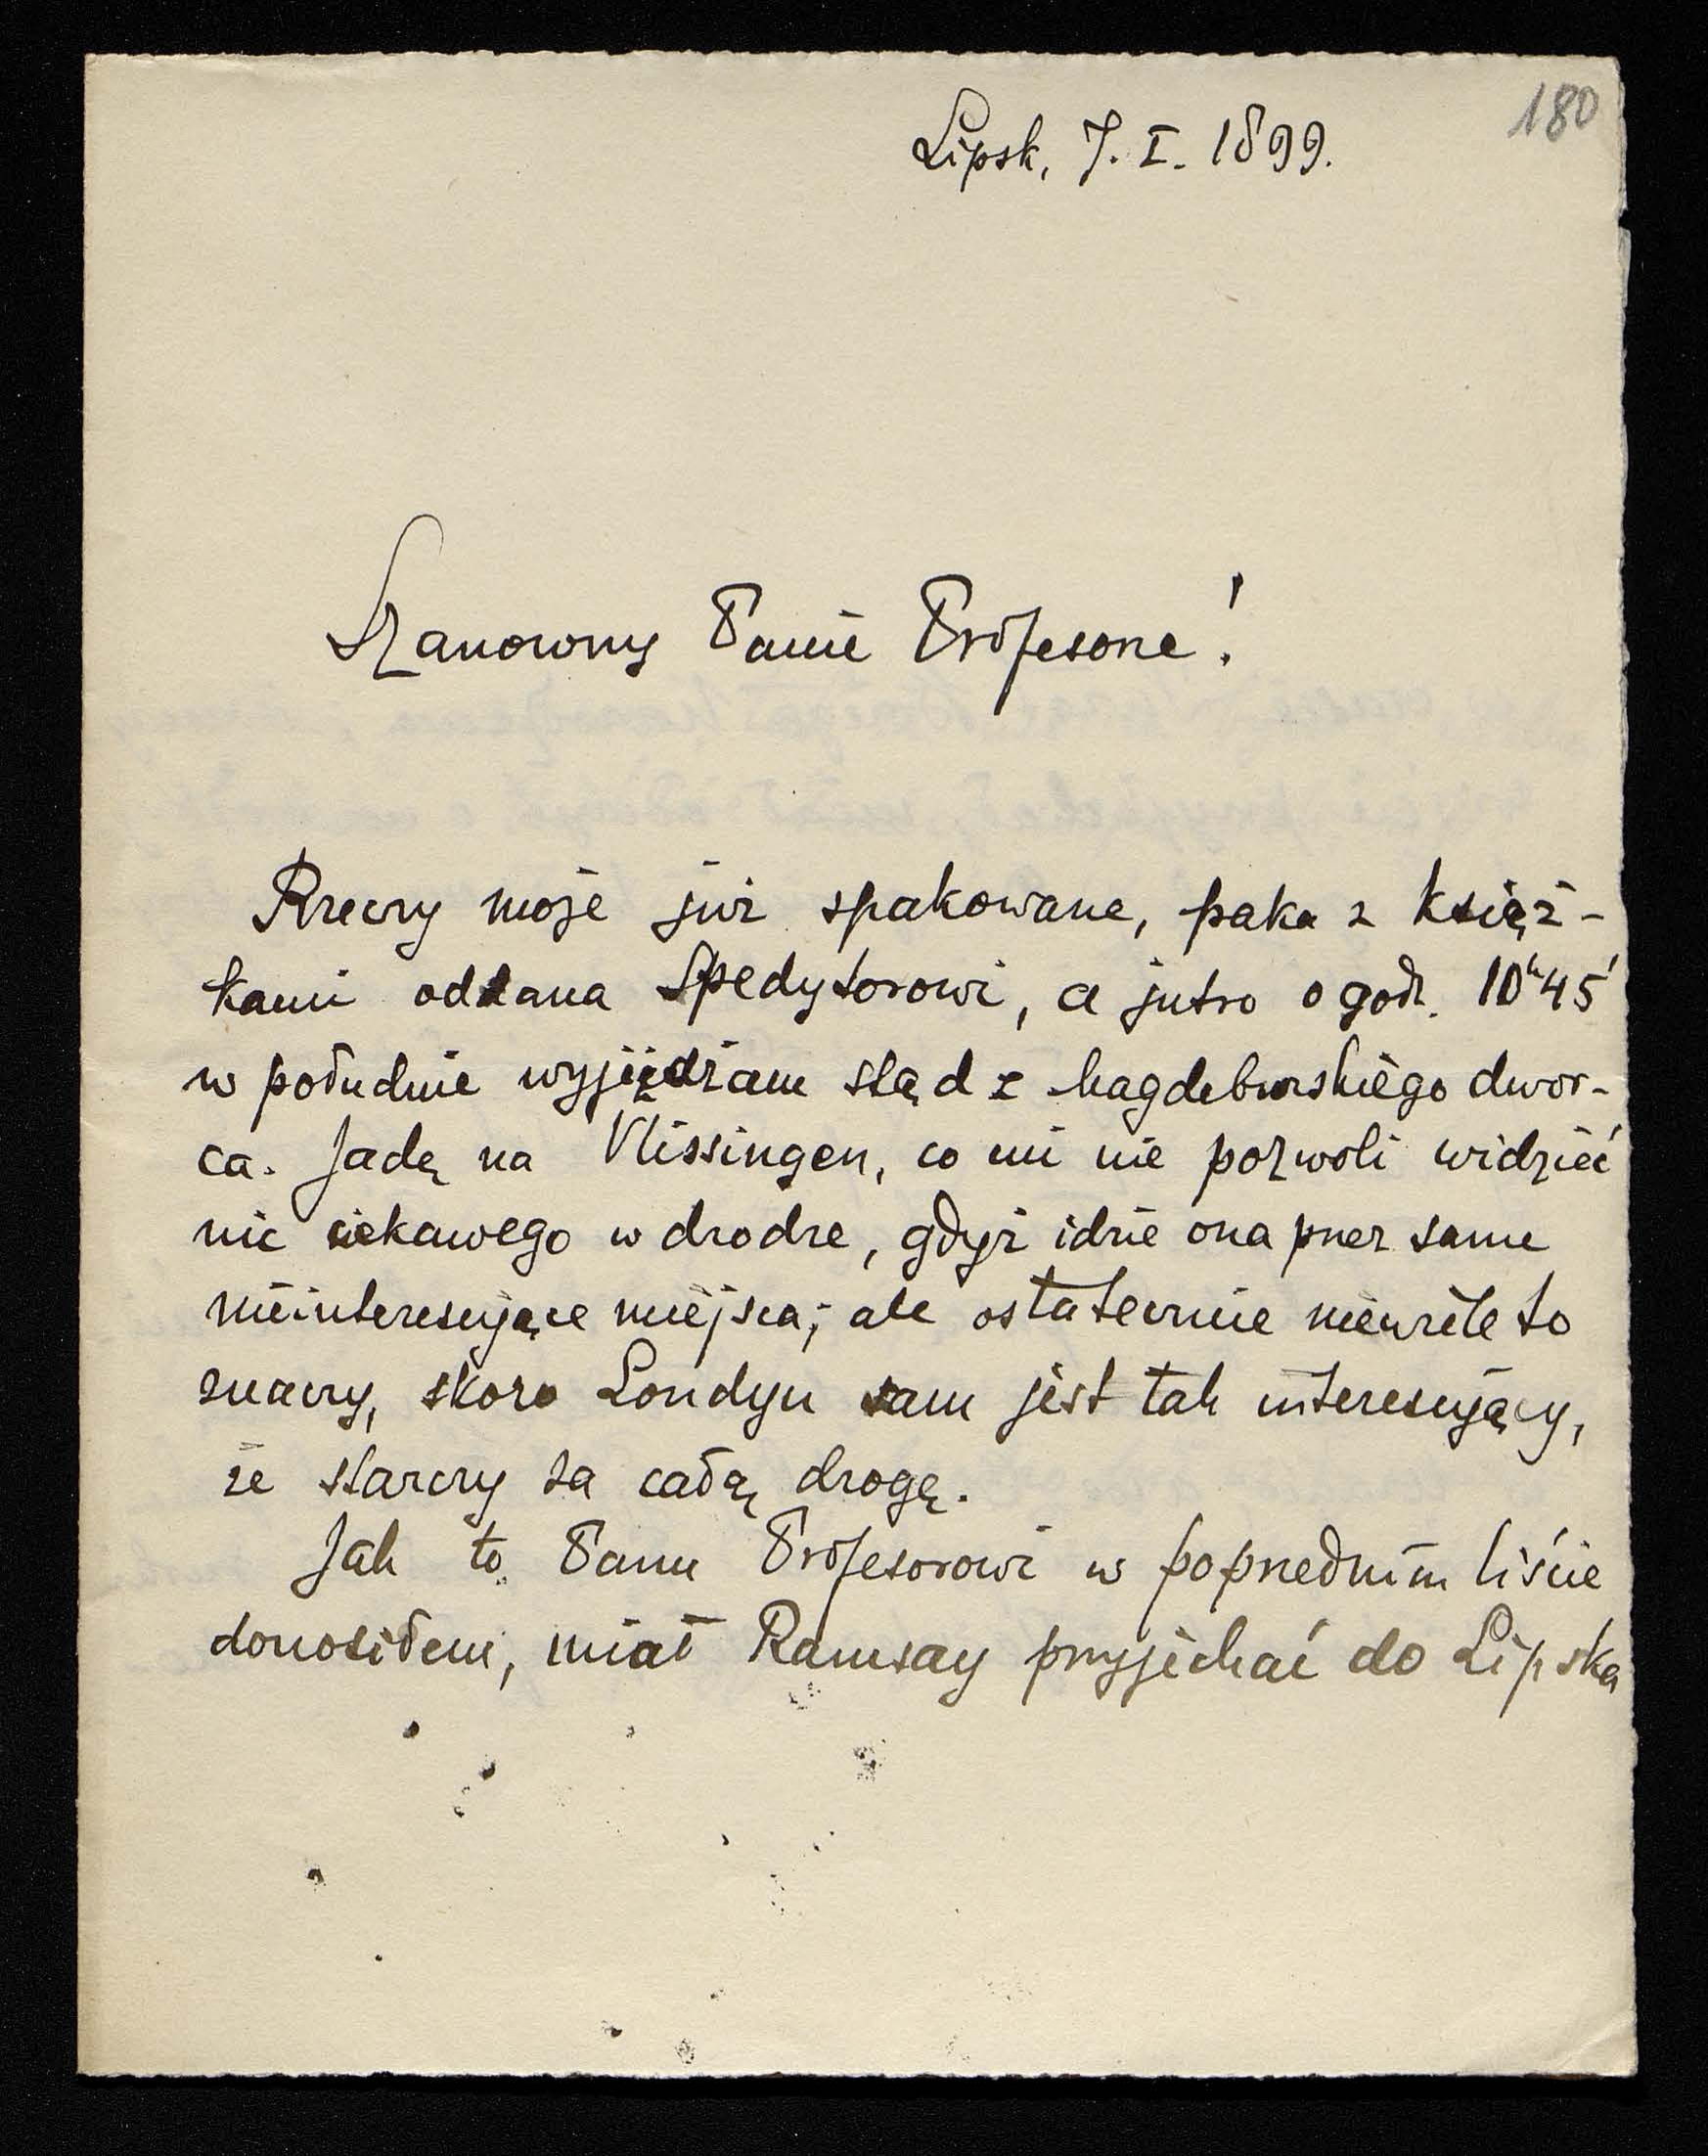 180
Lipsk, 7. I. 1899.
Szanowny Panie Profesorze!
Rzeczy moje już spakowane, paka z książ-
kami oddana spedytorowi, a jutro o godz. 10h45'
w południe wyjeżdżam stąd z Magdeburskiego dwor-
ca. Jadę na Vlissingen, co mi nie pozwoli widzieć
nic ciekawego w drodze, gdyż idzie ona przez same
nieinteresujące miejsca; ale ostatecznie niewiele to
znaczy, skoro Londyn sam jest tak interesujący,
że starczy za całą drogę.
Jak to Panu Profesorowi w poprzednim liście
donosiłem, miał Ramsay przyjechać do Lipska